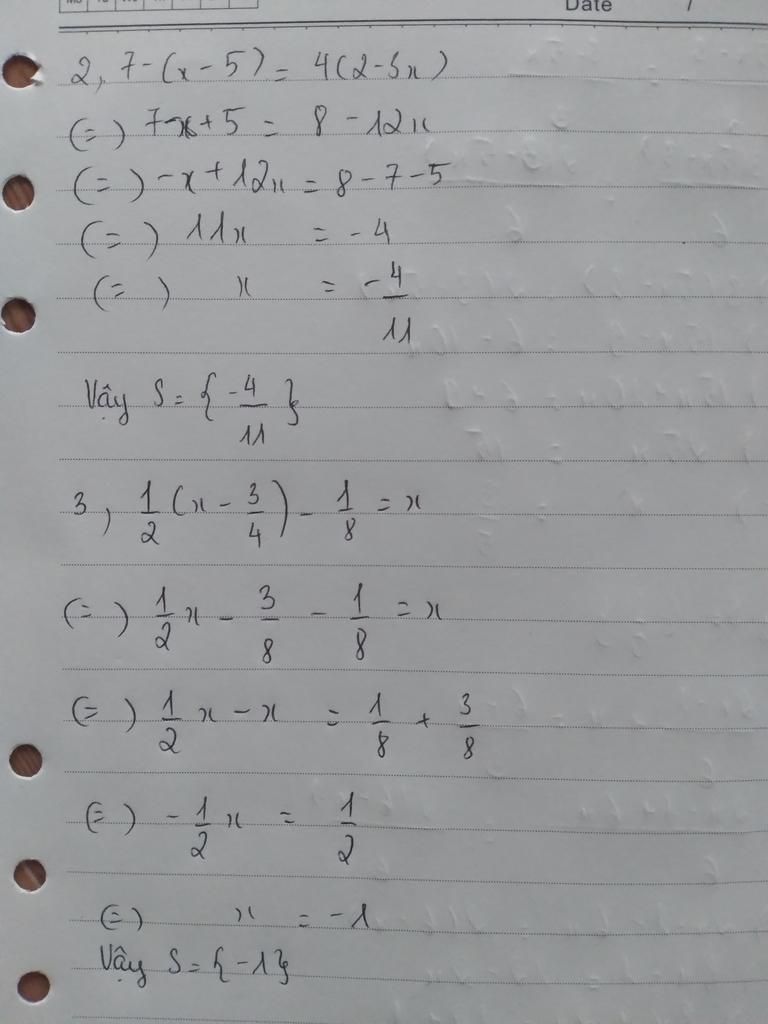 Date /
2, 7-(x-5) = 4(2-3x)
(=) 7-x+5 = 8-12x
(=) -x+12x = 8-7-5
(=) 11x = -4
(=) x = -4/11
Vậy S = { -4/11 }
3, 1/2 (x - 3/4) - 1/8 = x
(=) 1/2 x - 3/8 - 1/8 = x
(=) 1/2 x - x = 1/8 + 3/8
(=) -1/2 x = 1/2
(=) x = -1
Vậy S = {-1}